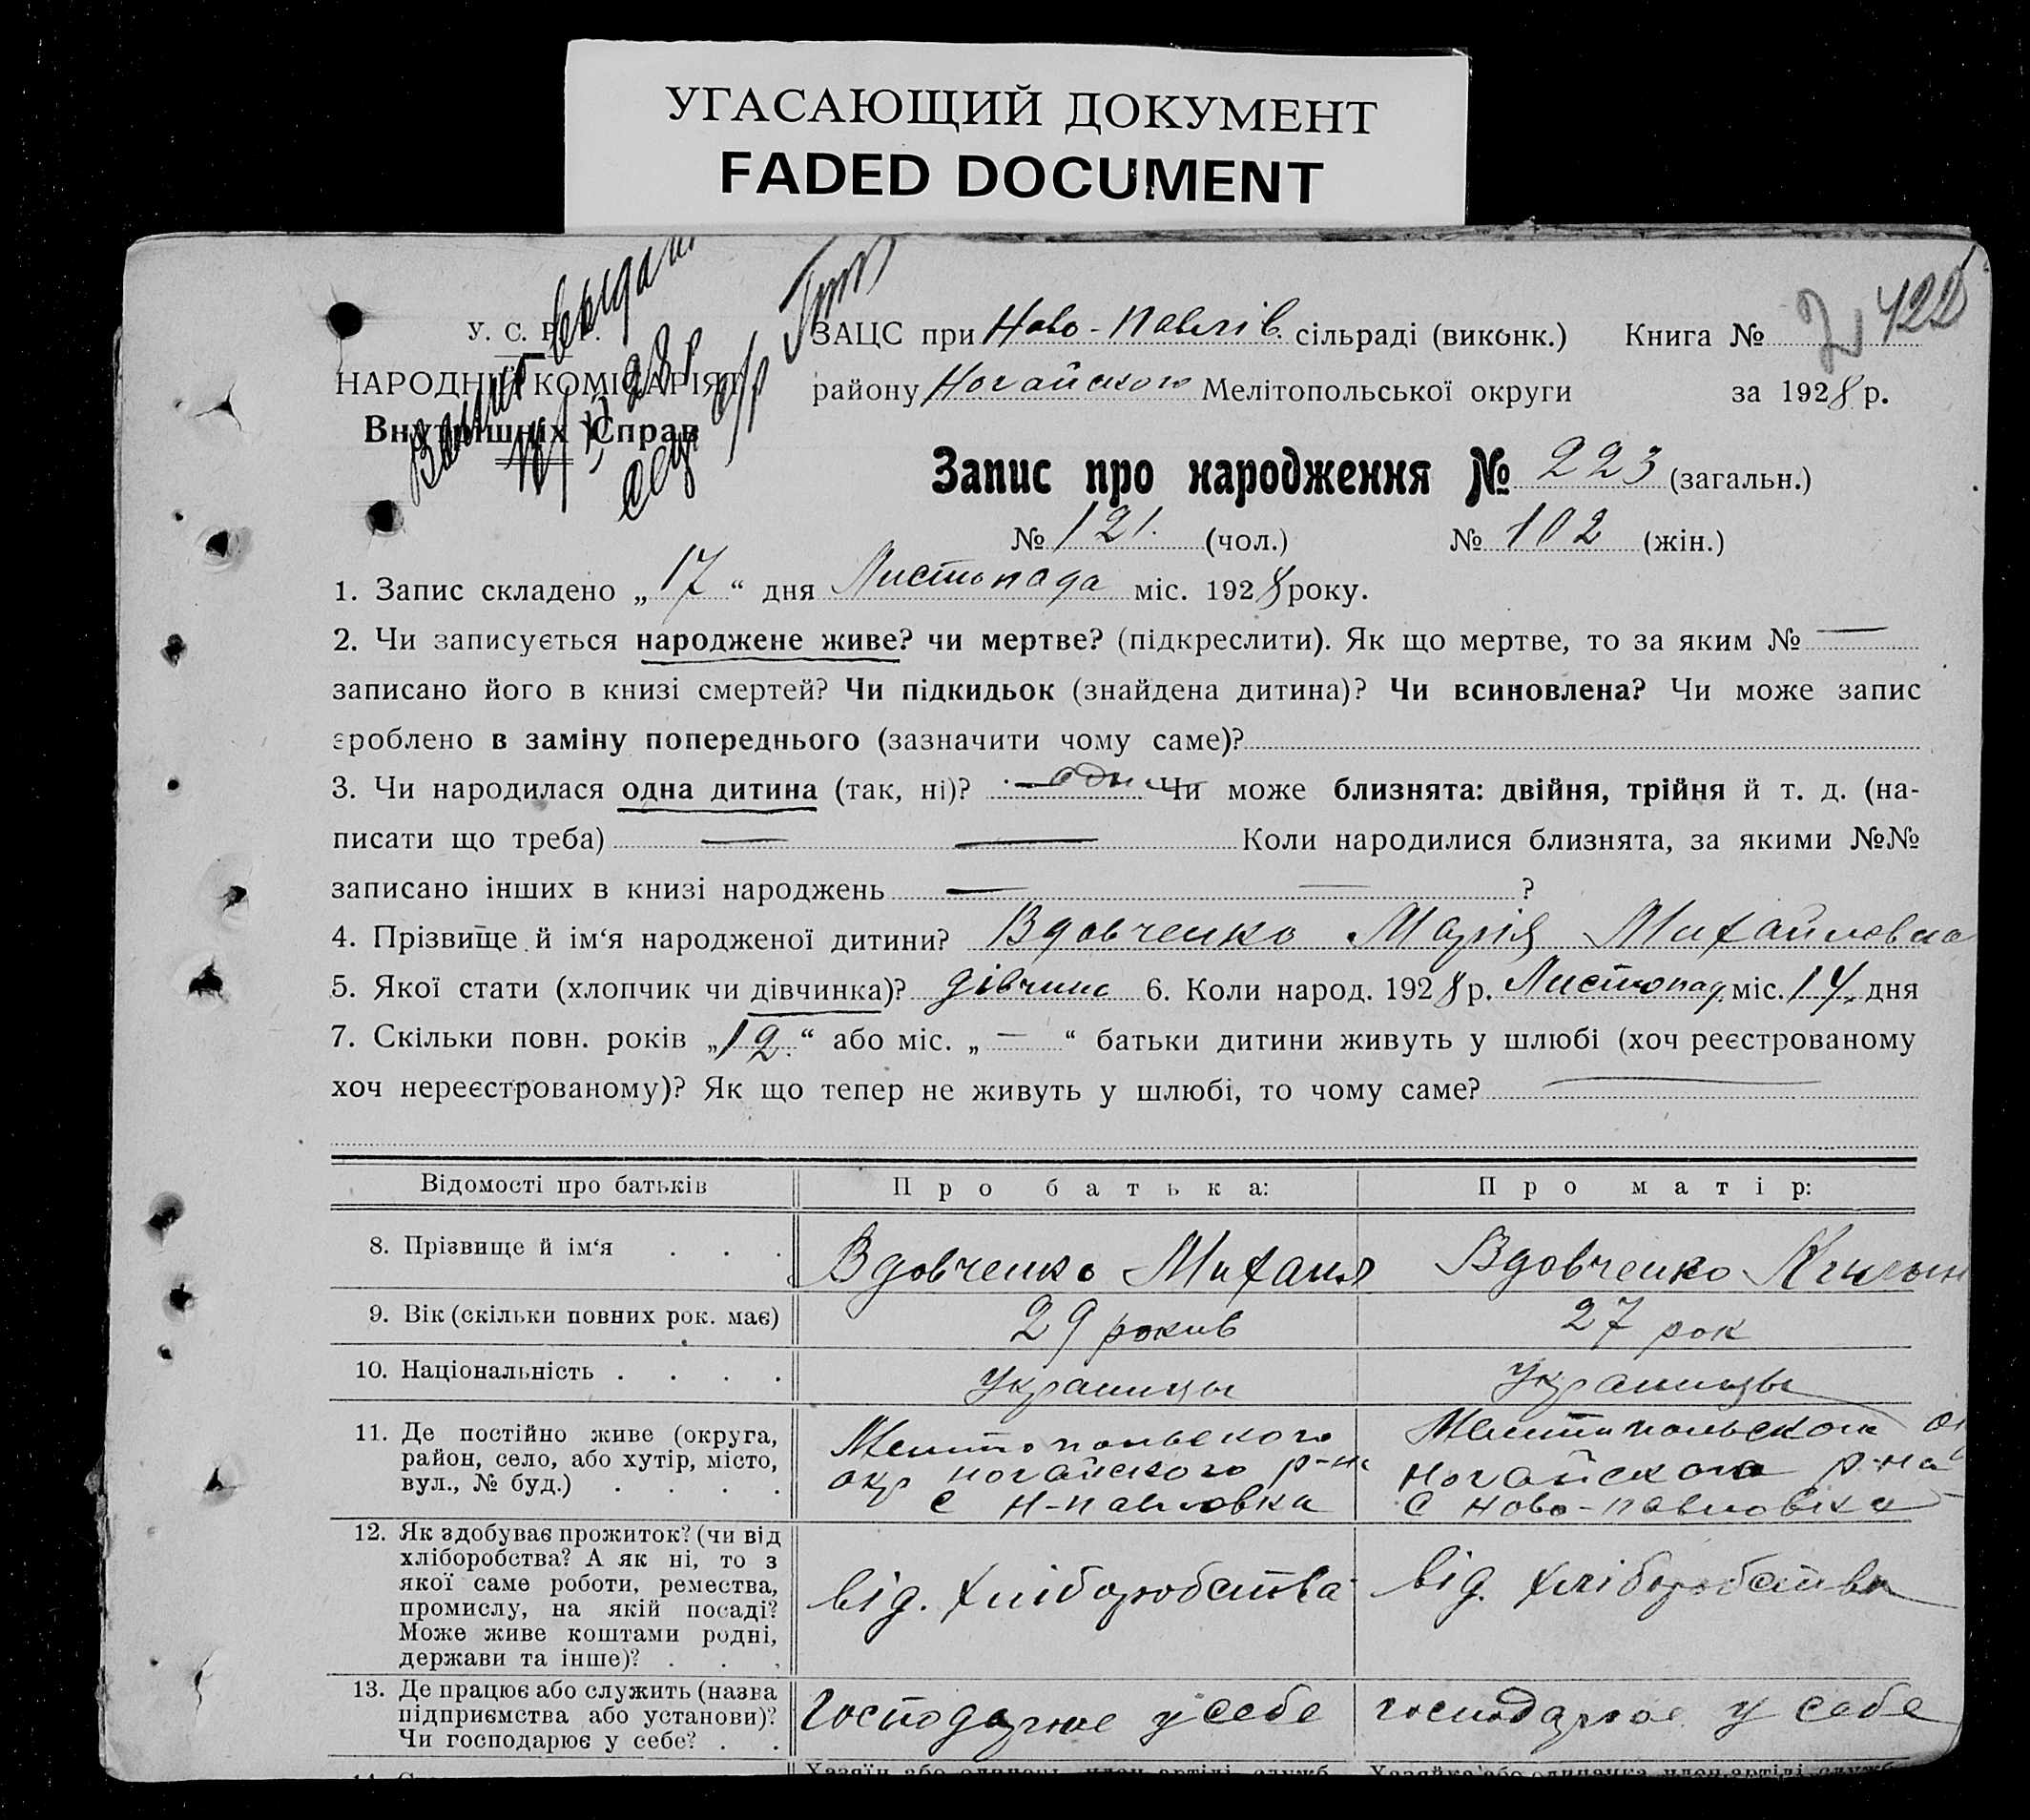 УГАСАЮЩИЙ ДОКУМЕНТ
FADED DOCUMENT
422
У. С. Р. Р.
НАРОДНІЙ КОМІСАРІЯТ
Внутрішніх Справ
ЗАЦС при Ново-Павлів. сільраді (виконк.) Книга № 2
району Ногайського Мелітопольської округи за 1928 р.
Запис про народження № 223 (загальн.)
№ 121. (чол.) № 102 (жін.)
1. Запис складено „17“ дня Листопада міс. 1928 року.
2. Чи записується народжене живе? чи мертве? (підкреслити). Як що мертве, то за яким № —
записано його в книзі смертей? Чи підкидьок (знайдена дитина)? Чи всиновлена? Чи може запис
зроблено в заміну попереднього (зазначити чому саме)?
3. Чи народилася одна дитина (так, ні)? Чи може близнята: двійня, трійня й т. д. (на-
писати що треба) — — Коли народилися близнята, за якими №№
записано інших в книзі народжень — — ?
4. Прізвище й ім‘я народженої дитини? Вдовченко Марія Михайловна
5. Якої стати (хлопчик чи дівчинка)? дівчина 6. Коли народ. 1928 р. Листопад. міс. 14. дня
7. Скільки повн. років „12.“ або міс. „—“ батьки дитини живуть у шлюбі (хоч реєстрованому
хоч нереєстрованому)? Як що тепер не живуть у шлюбі, то чому саме? —
Відомості про батьків Про батька: Про матір:
8. Прізвище й ім‘я . . . Вдовченко Михаил Вдовченко
9. Вік (скільки повних рок. має) 29 рокив 27 рок
10. Національність . . . . Украинцы Украинцы
11. Де постійно живе (округа,
район, село, або хутір, місто,
вул., № буд.) . . . .
Мелитопольского
окр Ногайского р-на
с Н-Павловка
Мелитопольского
Ногайского р-на
с Ново-Павловка
12. Як здобуває прожиток? (чи від
хліборобства? А як ні, то з
якої саме роботи, ремества,
промислу, на якій посаді?
Може живе коштами родні,
держави та інше)? . . .
від. хліборобства від. хліборобства
13. Де працює або служить (назва
підприємства або установи)?
Чи господарює у себе? . .
господарює у себе господарює у себе
Хазяїн або одинець, член артілі, служб.
Хазяйка або одиначка, член артілі, служб